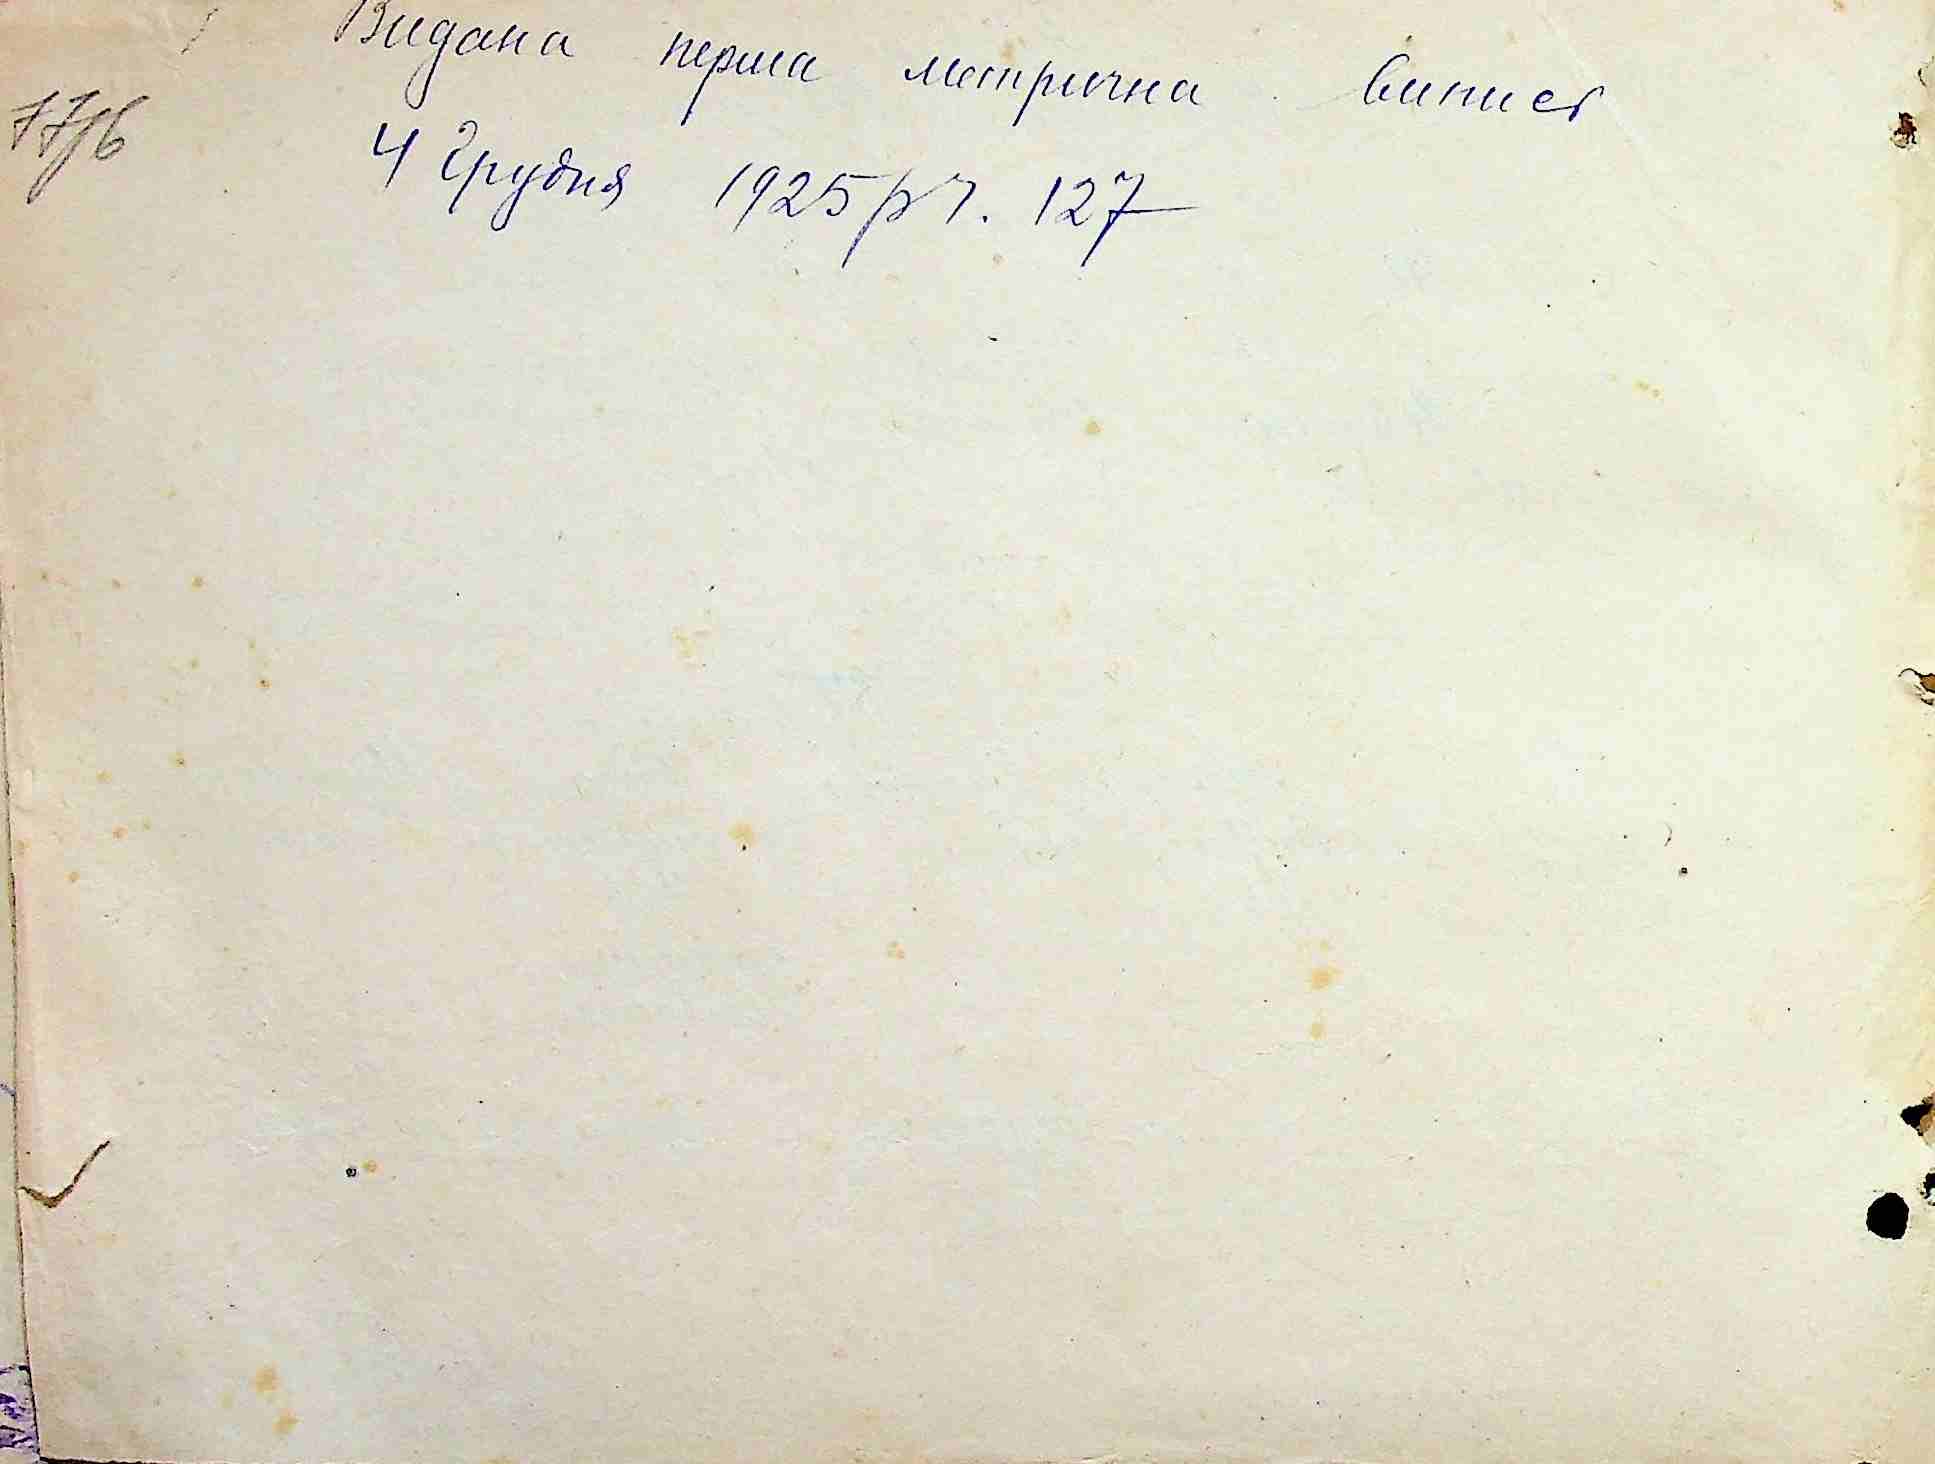 Видана перша метрична випись
4 Грудня 1925 р ч. 127